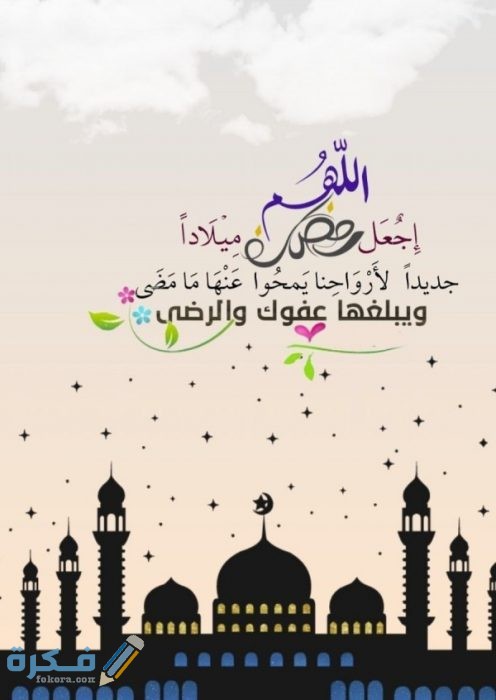 اللّهُم
إِجْعَل رمضان مِيْلَاداً
جديداً لأَرْوَاحِنا يَمحُوا عَنْهَا مَا مَضَى
ويبلغها عفوك والرضى
فكرة
fokera.com